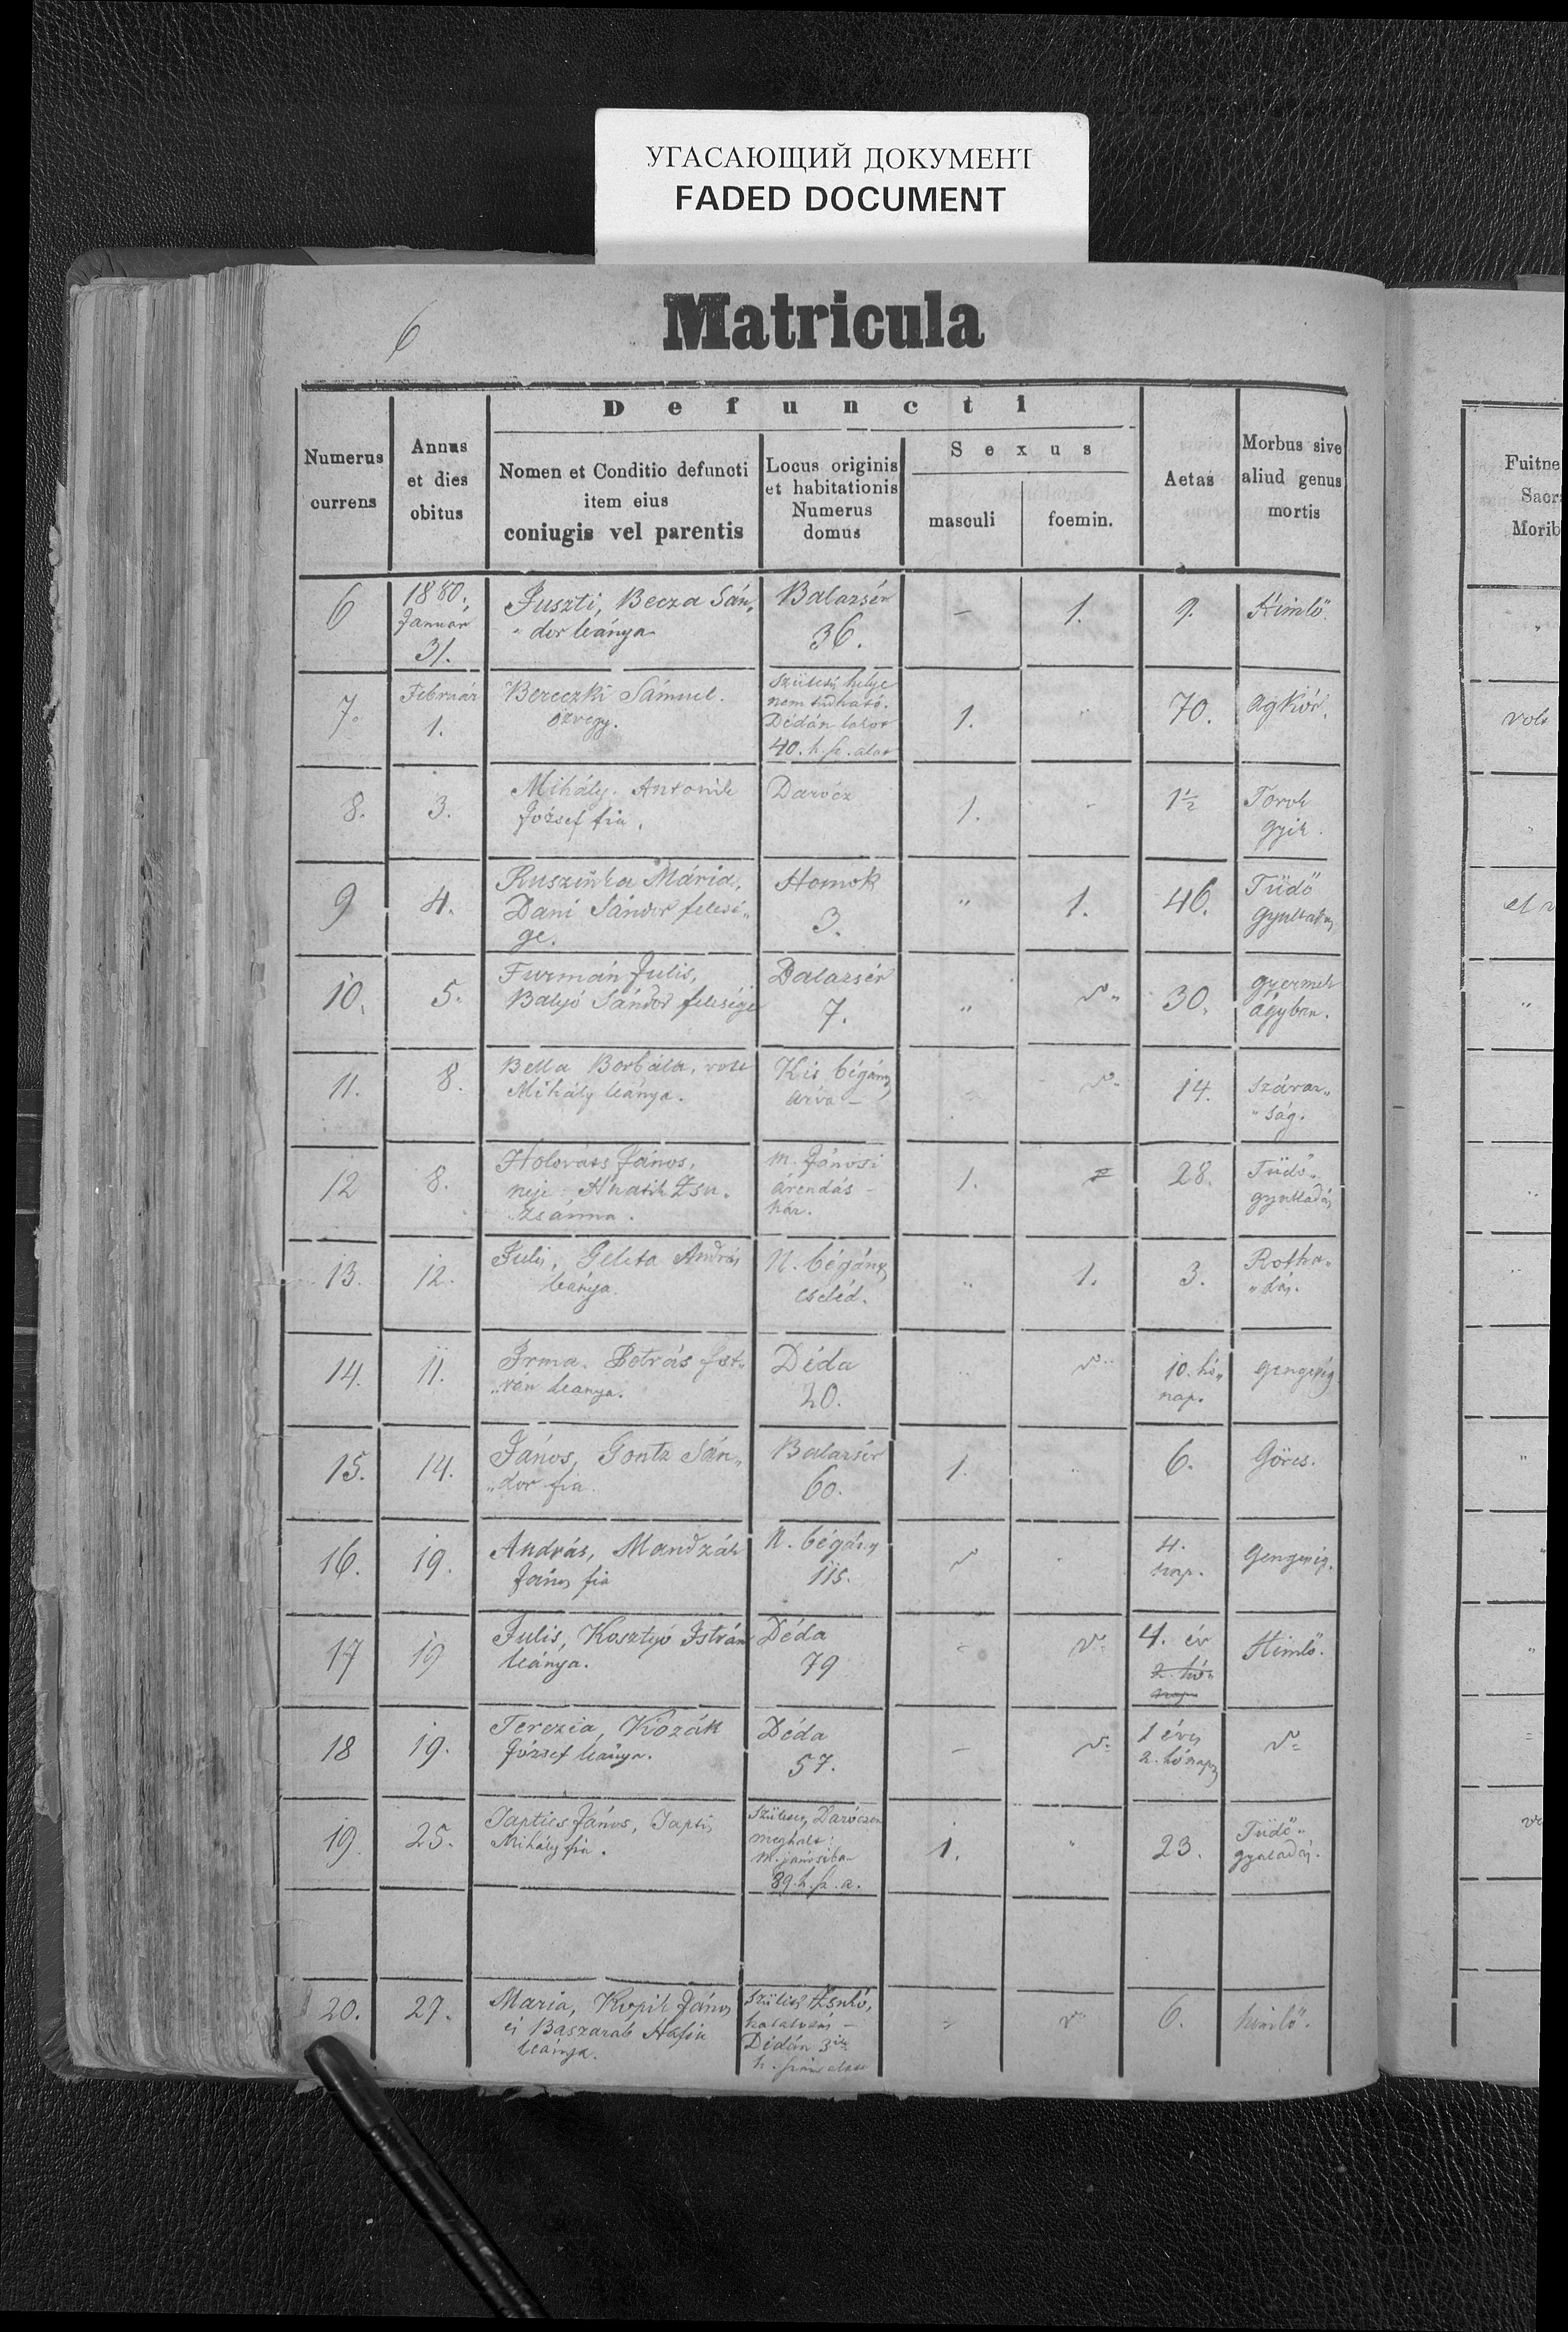 УГАСАЮЩИЙ ДОКУМЕНТ
FADED DOCUMENT
6
Matricula
Defuncti
Numerus currens
Annus et dies obitus
Nomen et Conditio defuncti
item eius
coniugis vel parentis
Locus originis
et habitationis
Numerus
domus
Sexus
masculi
foemin.
Aetas
Morbus sive
aliud genus
mortis
Fuitne
Sacr
Morib
6 1880. Január 31.
Juszti, Becza Sán„
„dor leánya
Balazsér
36.
– 1. 9. Himlő.
7. Február 1.
Bereczki Sámuel.
özvegy.
Születés helye
nem tudható.
Dédán lakot
40. h. sz. alat
1. „ 70. Agkór.
8. 3.
Mihály. Antonik
József fia.
Darócz
1. „ 1½ Torok
gyik.
9 4.
Ruszinka Mária,
Dani Sándor felesé„
ge.
Homok
3.
„ 1. 46. Tüdő
gyulladás
10. 5.
Furmán Julis,
Balyó Sándor felesége
Balazsér
7.
„ „ 30. gyermek
ágyban.
11. 8.
Bella Borbála, volt
Mihály leánya.
Kis bégány
árva –
14. Szárar„
„ság.
12 8.
Holováts János,
neje, Hnatik Zsu„
zsánna.
m. Jánosi
árendás –
ház.
1. 28. Tüdő„
gyulladás
13. 12.
Julis, Geleta András
leánya.
N. bégány
cseléd.
„ 1. 3. Rotha„
„dás.
14. 11.
Irma. Petrás Ist„
„ván leanya.
Déda
20.
10. hó„
nap.
gyengeség
15. 14.
János, Gontz Sán„
„dor fia.
Balazsér
60.
1. 6. Görcs.
16. 19.
András, Mandzák
János fia
N. bégány
115.
4.
nap.
Gyengeség.
17 19
Julis, Kosztyó István
leánya.
Déda
79
4. év
2. hó„
nap
Himlő.
18 19.
Terezia, Kózák
József leánya.
Déda
57.
1 éves
2. hónapos
19. 25.
Japtics János, Japtis
Mihály fia.
Születet, Daróczon
meghalt:
m. jánosiban
89. h. sz. a.
1. „ 23. Tüdő„
gyuladás.
20. 27.
Maria, Kopik János
és Baszarab
leánya.
Születet
Dédán 3
h. szám alatt
6. himlő.